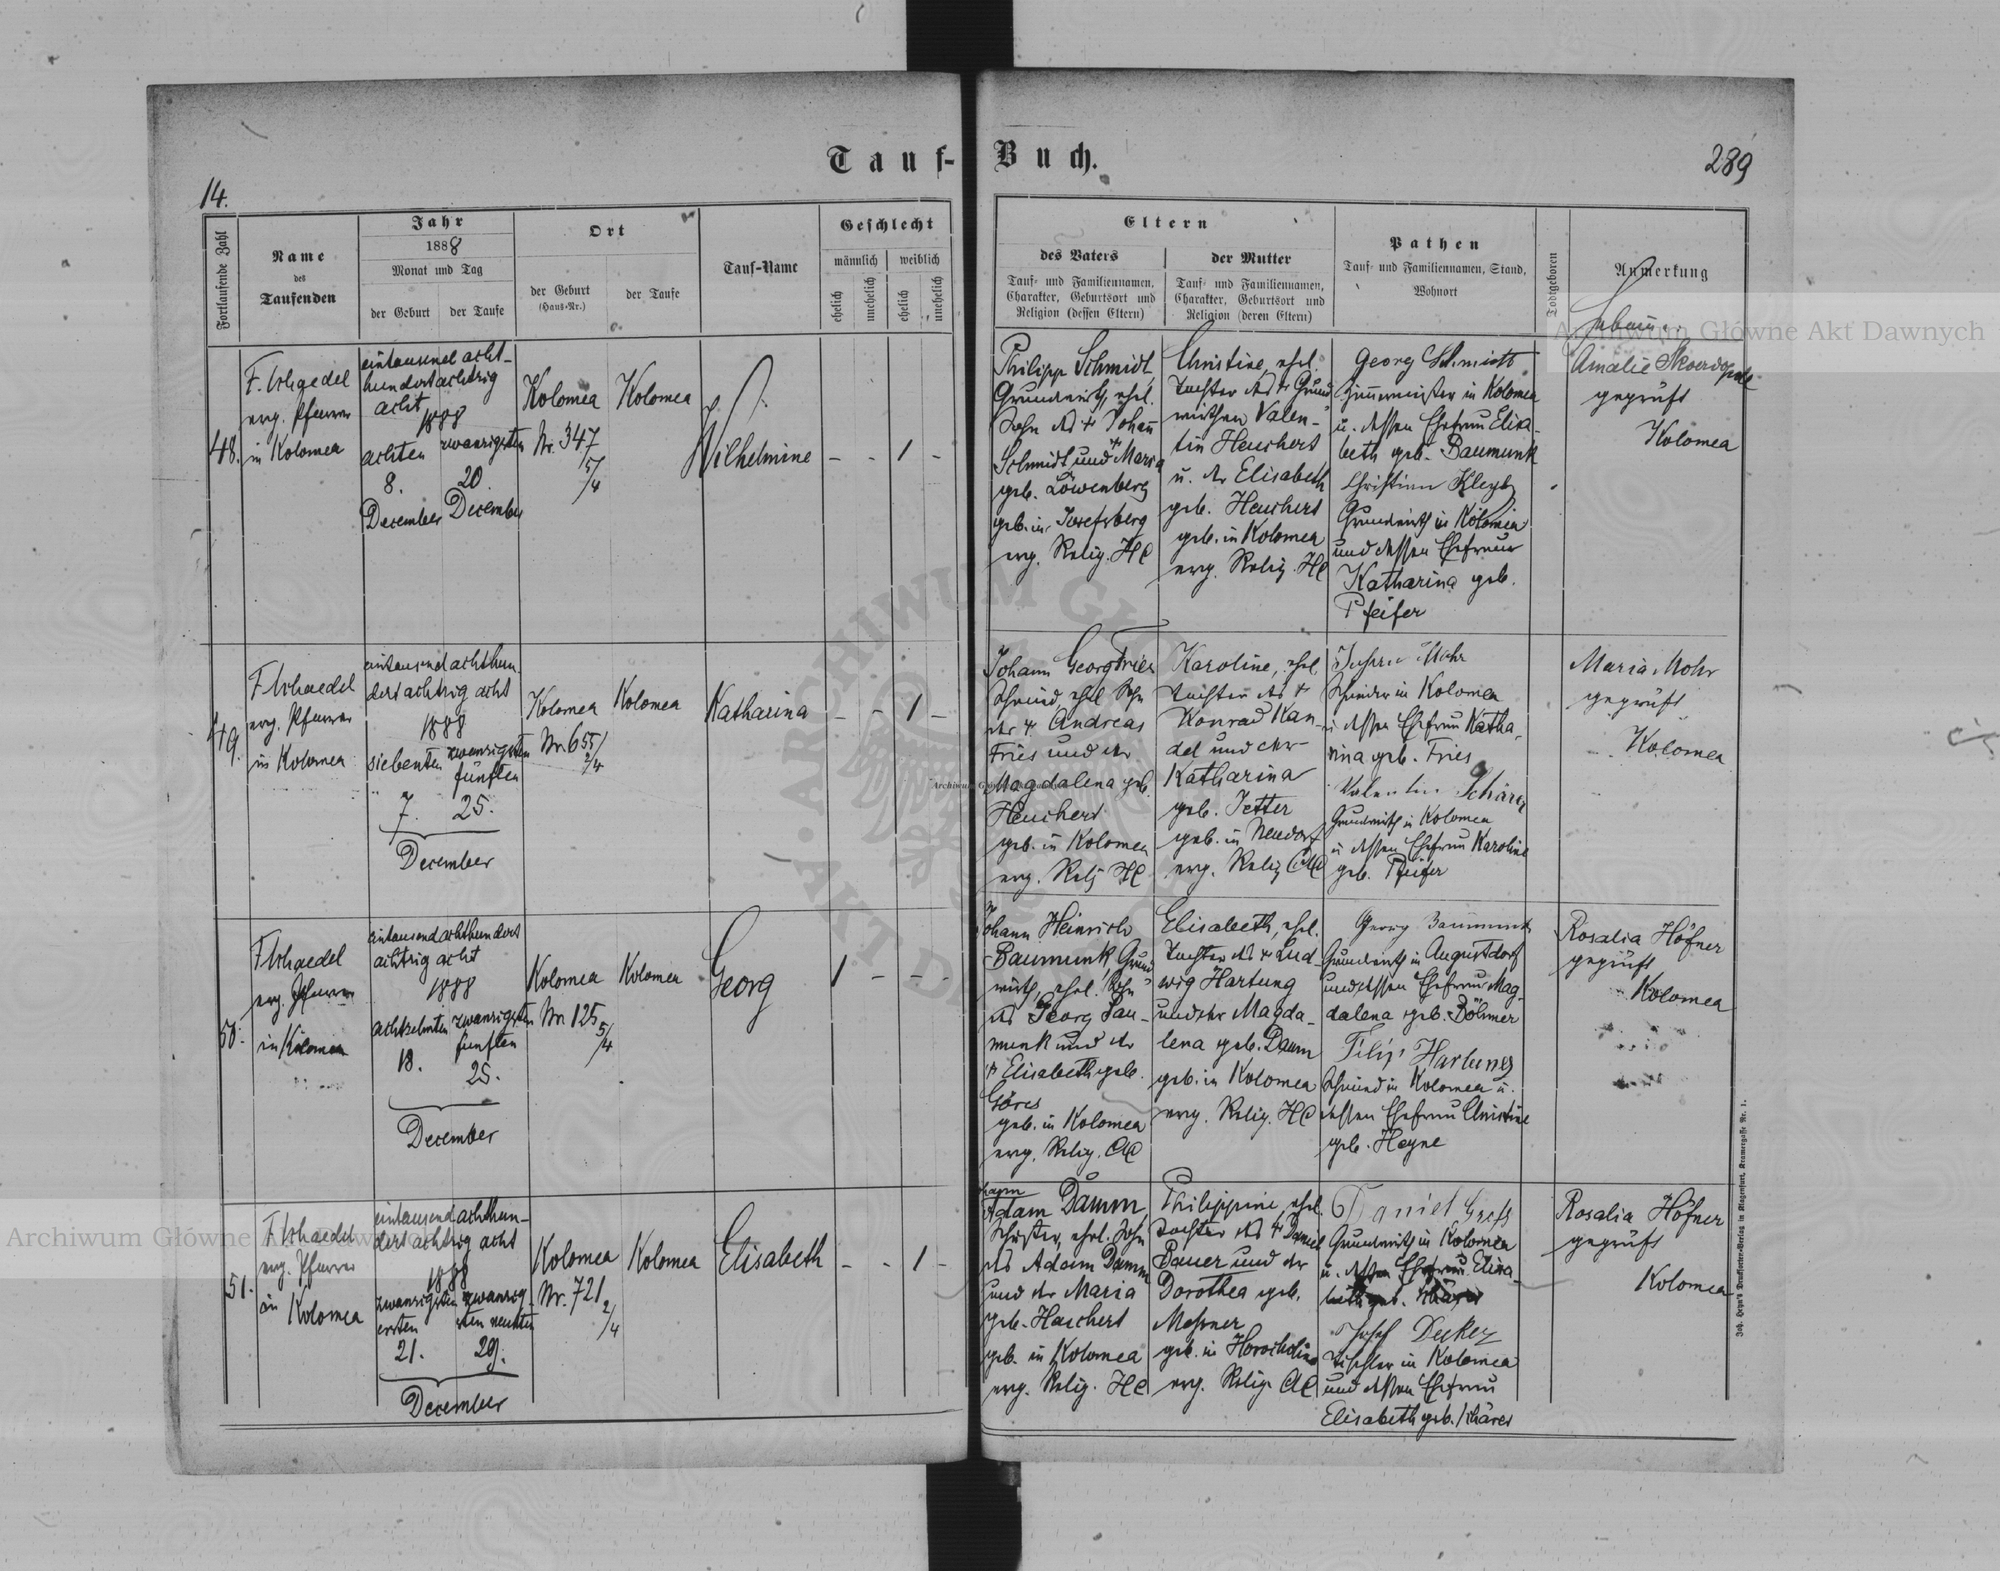 Tauf-Buch.
14.
289
Fortlaufende Zahl
Name
des
Taufenden
Jahr
1888
Monat und Tag
der Geburt
der Taufe
Ort
der Geburt
(Haus-Nr.)
der Taufe
Tauf-Name
Geschlecht
männlich
weiblich
ehelich
unehelich
ehelich
unehelich
Eltern
des Vaters
Tauf- und Familiennamen,
Charakter, Geburtsort und
Religion (dessen Eltern)
der Mutter
Tauf- und Familiennamen,
Charakter, Geburtsort und
Religion (deren Eltern)
Pathen
Tauf- und Familiennamen, Stand,
Wohnort
Todtgeboren
Anmerkung
48.
evg. Pfarrer
in Kolomea
eintausend acht-
hundertachtzig
acht
1888
achten
8.
December
zwanzigsten
20.
December
Kolomea
Nr. 347
5/4
Kolomea
Wilhelmine
- - 1 -
Philipp Schmidt,
Grundwirth, ehel.
Sohn des + Johann
Schmidt und Maria
geb. Löwenberg
geb. in Josefsberg
evg. Relig. HC
Christine, ehel.
Tochter des + Grund-
wirthen Valen-
tin Heuchert
u. der Elisabeth
geb. Heuchert
geb. in Kolomea
evg. Relig. HC
Georg Schmidt
Zimmermeister in Kolomea
u. dessen Ehefrau Elisa-
beth geb. Baumunk
Christian
Grundwirth in Kolomea
und dessen Ehefrau
Katharina geb.
Pfeifer
Amalie
geprüft
Kolomea
49.
evg. Pfarrer
in Kolomea
eintausend achthun-
dert achtzig acht
1888
siebenten
7.
zwanzigsten
fünften
25.
December
Kolomea
Nr. 655/
2/4
Kolomea
Katharina
- - 1 -
Johann Georg Fries
Schmied, ehel. Sohn
des + Andreas
Fries und der
Magdalena geb.
Heuchert
geb. in Kolomea
evg. Relig HC
Karoline, ehel.
Tochter des +
Konrad Kan-
del und der
Katharina
geb. Jetter
geb. in Neudorf
evg. Relig AC
Mohr
in Kolomea
u. dessen Ehefrau Katha-
rina geb. Fries
Valentin Schärer
Grundwirth in Kolomea
u. dessen Ehefrau Karoline
geb. Pfeifer
Maria Mohr
geprüft
Kolomea
50.
evg. Pfarrer
in Kolomea
eintausend achthundert
achtzig acht
1888
achtzehnten
18.
zwanzigsten
fünften
25.
December
Kolomea
Nr. 125
5/4
Kolomea
Georg
1 - - -
Johann Heinrich
Baumunk, Grund-
wirth, ehel. Sohn
des Georg Bau-
munk und der
+ Elisabeth geb.
Göres
geb. in Kolomea
evg. Relig. AC
Elisabeth, ehel.
Tochter des + Lud-
wig Hartung
und der Magda-
lena geb. Daum
geb. in Kolomea
evg. Relig. HC
Georg Baumunk
Grundwirth in Augustdorf
und dessen Ehefrau Mag-
dalena geb. Böhmer
Filip Hartung
Schmied in Kolomea u.
dessen Ehefrau Christine
geb. Heyne
Rosalia Höfner
geprüft
Kolomea
51.
evg. Pfarrer
in Kolomea
eintausend achthun-
dert achtzig acht
1888
zwanzigsten
ersten
21.
zwanzig-
sten neunten
29.
December
Kolomea
Nr. 721
2/4
Kolomea
Elisabeth
- - 1 -
Adam Damm,
Schuster, ehel. Sohn
des Adam Damm
und der Maria
geb. Heuchert
geb. in Kolomea
evg. Relig. HC
Philippine, ehel.
Tochter des + Daniel
Bauer und der
Dorothea geb.
Messner
geb. in Horocholina
evg. Relig. AC
Daniel
Grundwirth in Kolomea
u. dessen Ehefrau Elisa-
Josef Decker
Tischler in Kolomea
und dessen Ehefrau
Elisabeth geb. Schärer
Rosalia Höfner
geprüft
Kolomea
Joh. Heyn's Drucksorten-Verlag in Klagenfurt, Kramergasse Nr. 1.
Archiwum Główne Akt Dawnych
Archiwum Główne Akt Dawnych
ARCHIWUM GŁÓWNE AKT DAWNYCH